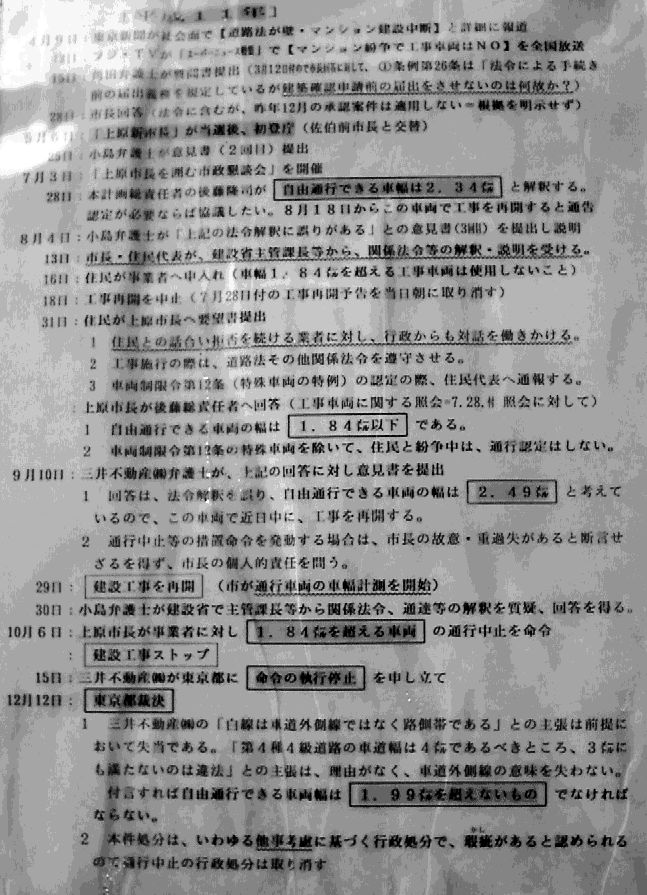 【平成11年】
4月9日：東京新聞が社会面で【道路法が壁・マンション建設中断】と詳細に報道
で【マンション紛争で工事車両はNO】を全国放送
19日：角田弁護士が質問書提出（3月12日付の市長回答に対して、①条例第26条は「法令による手続き
前の届出義務を規定しているが建築確認申請前の届出をさせないのは何故か？）
28日：市長回答（法令に含むが、昨年12月の承認案件は適用しない＝根拠を明示せず）
5月6日：「上原新市長」が当選後、初登庁（佐伯前市長と交替）
25日：小島弁護士が意見書（2回目）提出
7月3日：「上原市長を囲む市政懇談会」を開催
28日：本計画総責任者の後藤隆司が 自由通行できる車幅は2.34㍍ と解釈する。
認定が必要ならば協議したい。8月18日からこの車両で工事を再開すると通告
8月4日：小島弁護士が「上記の法令解釈に誤りがある」との意見書(3回目)を提出し説明
13日：市長・住民代表が、建設省主管課長等から、関係法令等の解釈・説明を受ける。
16日：住民が事業者へ申入れ（車幅1.84㍍を超える工事車両は使用しないこと）
18日：工事再開を中止（7月28日付の工事再開予告を当日朝に取り消す）
31日：住民が上原市長へ要望書提出
1 住民との話合い拒否を続ける業者に対し、行政からも対話を働きかける。
2 工事施行の際は、道路法その他関係法令を遵守させる。
3 車両制限令第12条（特殊車両の特例）の認定の際、住民代表へ通報する。
：上原市長が後藤総責任者へ回答（工事車両に関する照会=7.28.付 照会に対して）
1 自由通行できる車両の幅は 1.84㍍以下 である。
2 車両制限令第12条の特殊車両を除いて、住民と紛争中は、通行認定はしない。
9月10日：三井不動産㈱弁護士が、上記の回答に対し意見書を提出
1 回答は、法令解釈を誤り、自由通行できる車両の幅は 2.49㍍ と考えて
いるので、この車両で近日中に、工事を再開する。
2 通行中止等の措置命令を発動する場合は、市長の故意・重過失があると断言せ
ざるを得ず、市長の個人的責任を問う。
29日： 建設工事を再開 （市が通行車両の車幅計測を開始）
30日：小島弁護士が建設省で主管課長等から関係法令、通達等の解釈を質疑、回答を得る。
10月6日：上原市長が事業者に対し 1.84㍍を超える車両 の通行中止を命令
： 建設工事ストップ
15日：三井不動産㈱が東京都に 命令の執行停止 を申し立て
12月12日： 東京都裁決
1 三井不動産㈱の「白線は車道外側線ではなく路側帯である」との主張は前提に
おいて失当である。「第4種4級道路の車道幅は4㍍であるべきところ、3㍍に
も満たないのは違法」との主張は、理由がなく、車道外側線の意味を失わない。
付言すれば自由通行できる車両幅は 1.99㍍を超えないもの でなければ
ならない。
2 本件処分は、いわゆる他事考慮に基づく行政処分で、瑕疵があると認められる
ので通行中止の行政処分は取り消す